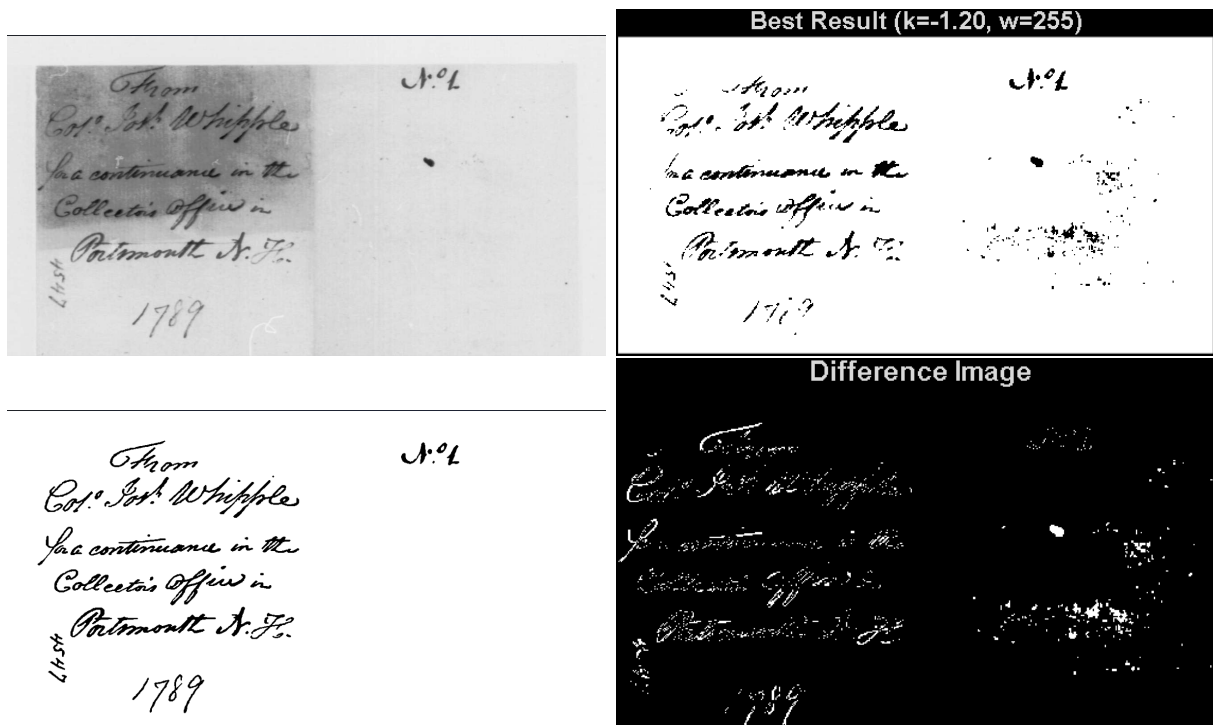 From
Nº 1
Colº Josʰ Whipple
for a continuance in the
Collectors Office in
Portsmouth N. H.
4547
1789
Best Result (k=-1.20, w=255)
From
Nº 1
Colº Josʰ Whipple
for a continuance in the
Collectors Office in
Portsmouth N. H.
4547
1789
From
Nº 1
Colº Josʰ Whipple
for a continuance in the
Collectors Office in
Portsmouth N. H.
4547
1789
Difference Image
From
Nº 1
Colº Josʰ Whipple
for a continuance in the
Collectors Office in
Portsmouth N. H.
4547
1789